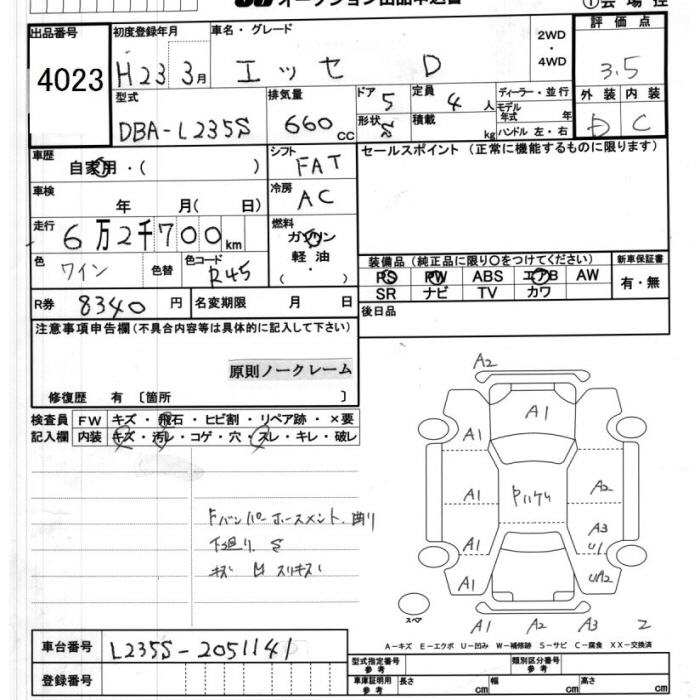 オークション出品申込書
①会場控
出品番号 初度登録年月 車名・グレード 2WD・4WD 評価点
4023 H23 3月 エッセ D 3.5
型式 排気量 ドア 5 定員 4人 ディーラー・並行 外装 内装
モデル年式 年
DBA-L235S 660cc 形状 5 積載 kg ハンドル 左・右 D C
車歴 シフト セールスポイント (正常に機能するものに限ります)
自家用・( ) FAT
車検 冷房
年 月( 日) AC
走行 燃料
6万2千700km ガソリン
軽油
( ・ )
色 色替 色コード 装備品(純正品に限り○をつけてください) 新車保証書
ワイン R45 PS PW ABS エアB AW 有・無
SR ナビ TV カワ
R券 8340円 名変期限 月 日 後日品
注意事項申告欄(不具合内容等は具体的に記入して下さい)
原則ノークレーム
修復歴 有 〔箇所 〕
検査員 FW キズ・飛石・ヒビ割・リペア跡・×要
記入欄 内装 キズ・汚レ・コゲ・穴・スレ・キレ・破レ
Fバンパーホースメント.曲り
下廻り.S
キズ 凹 スリキズ
A2
A1
A1
A1 A2
A3
A1 U1
A1 UA2
スペア
A1 A2 A3 2
A-キズ E-エクボ U-凹み W-補修跡 S-サビ C-腐食 XX-交換済
車台番号 L235S-2051141
型式指定番号 参考 類別区分番号 参考
登録番号 車庫証明用 参考 長さ cm 幅 cm 高さ cm